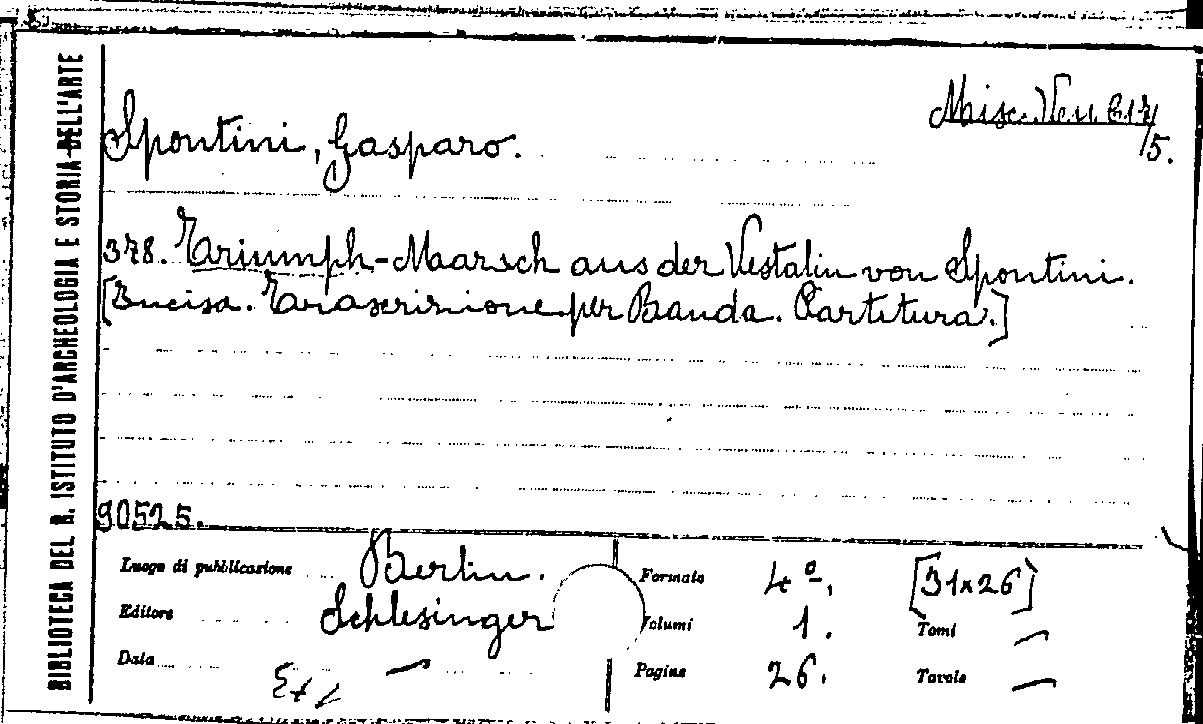 BIBLIOTECA DEL R. ISTITUTO D'ARCHEOLOGIA E STORIA DELL'ARTE
Misc. Ven.
/5.
Spontini, Gasparo.
378. Triumph-Marsch aus der Vestalin von Spontini.
[Incisa. Trascrizione per Banda. Partitura.]
90525.
Luogo di pubblicazione Berlin. Formato 4º. [31×26]
Editore Schlesinger Volumi 1. Tomi —
Data — Pagine 26. Tavole —